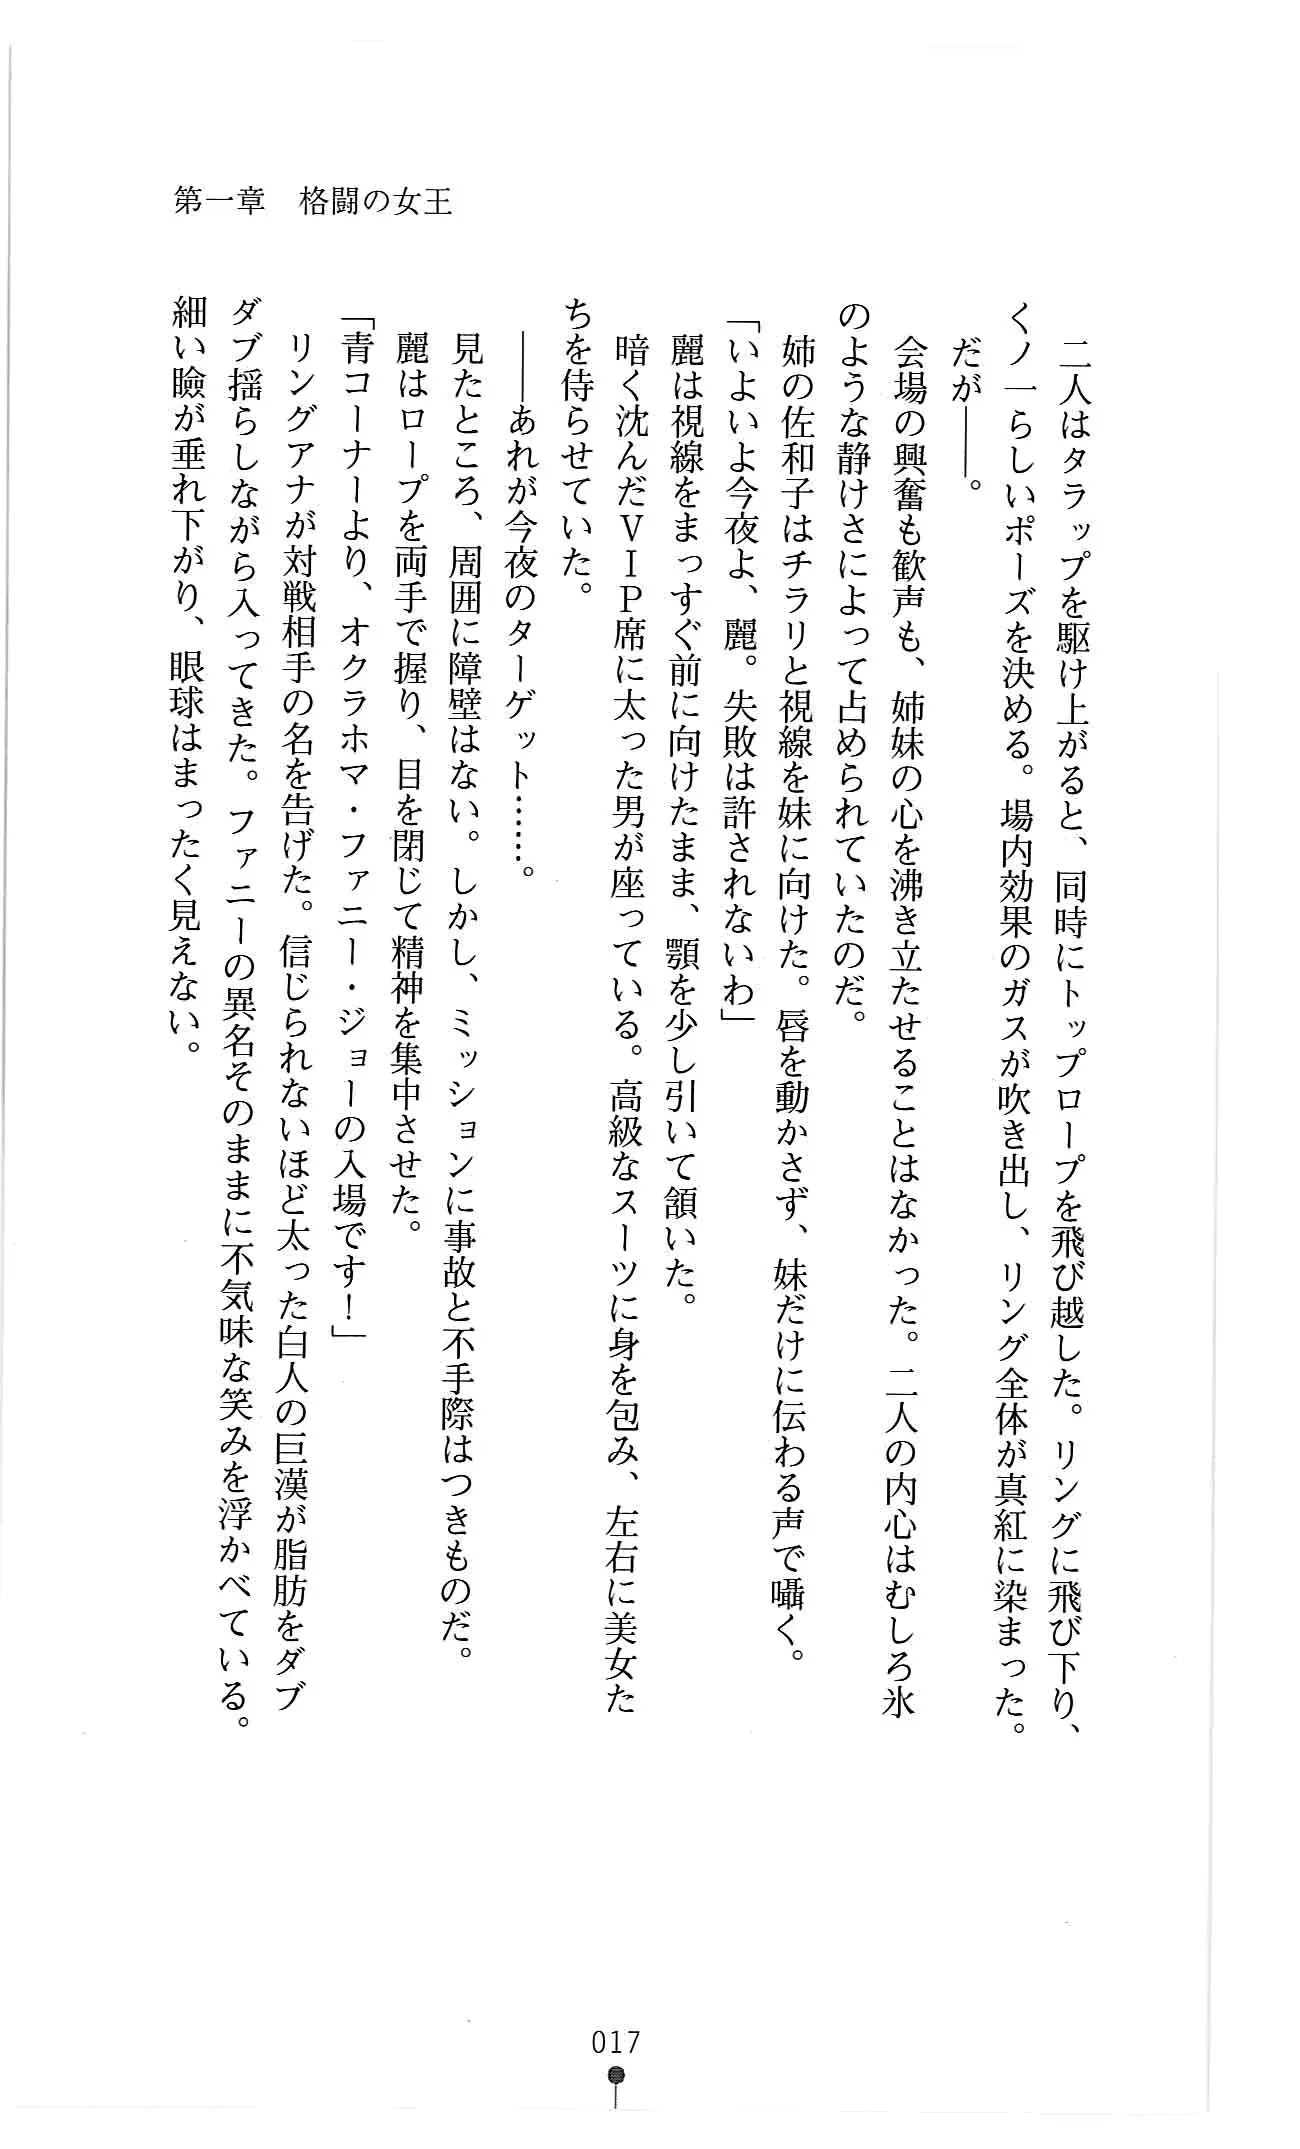 第一章　格闘の女王
　二人はタラップを駆け上がると、同時にトップロープを飛び越した。リングに飛び下り、
くノ一らしいポーズを決める。場内効果のガスが吹き出し、リング全体が真紅に染まった。
　だが――。
　会場の興奮も歓声も、姉妹の心を沸き立たせることはなかった。二人の内心はむしろ氷
のような静けさによって占められていたのだ。
　姉の佐和子はチラリと視線を妹に向けた。唇を動かさず、妹だけに伝わる声で囁く。
「いよいよ今夜よ、麗。失敗は許されないわ」
　麗は視線をまっすぐ前に向けたまま、顎を少し引いて頷いた。
　暗く沈んだＶＩＰ席に太った男が座っている。高級なスーツに身を包み、左右に美女た
ちを侍らせていた。
　――あれが今夜のターゲット……。
　見たところ、周囲に障壁はない。しかし、ミッションに事故と不手際はつきものだ。
　麗はロープを両手で握り、目を閉じて精神を集中させた。
「青コーナーより、オクラホマ・ファニー・ジョーの入場です！」
　リングアナが対戦相手の名を告げた。信じられないほど太った白人の巨漢が脂肪をダブ
ダブ揺らしながら入ってきた。ファニーの異名そのままに不気味な笑みを浮かべている。
細い瞼が垂れ下がり、眼球はまったく見えない。
017